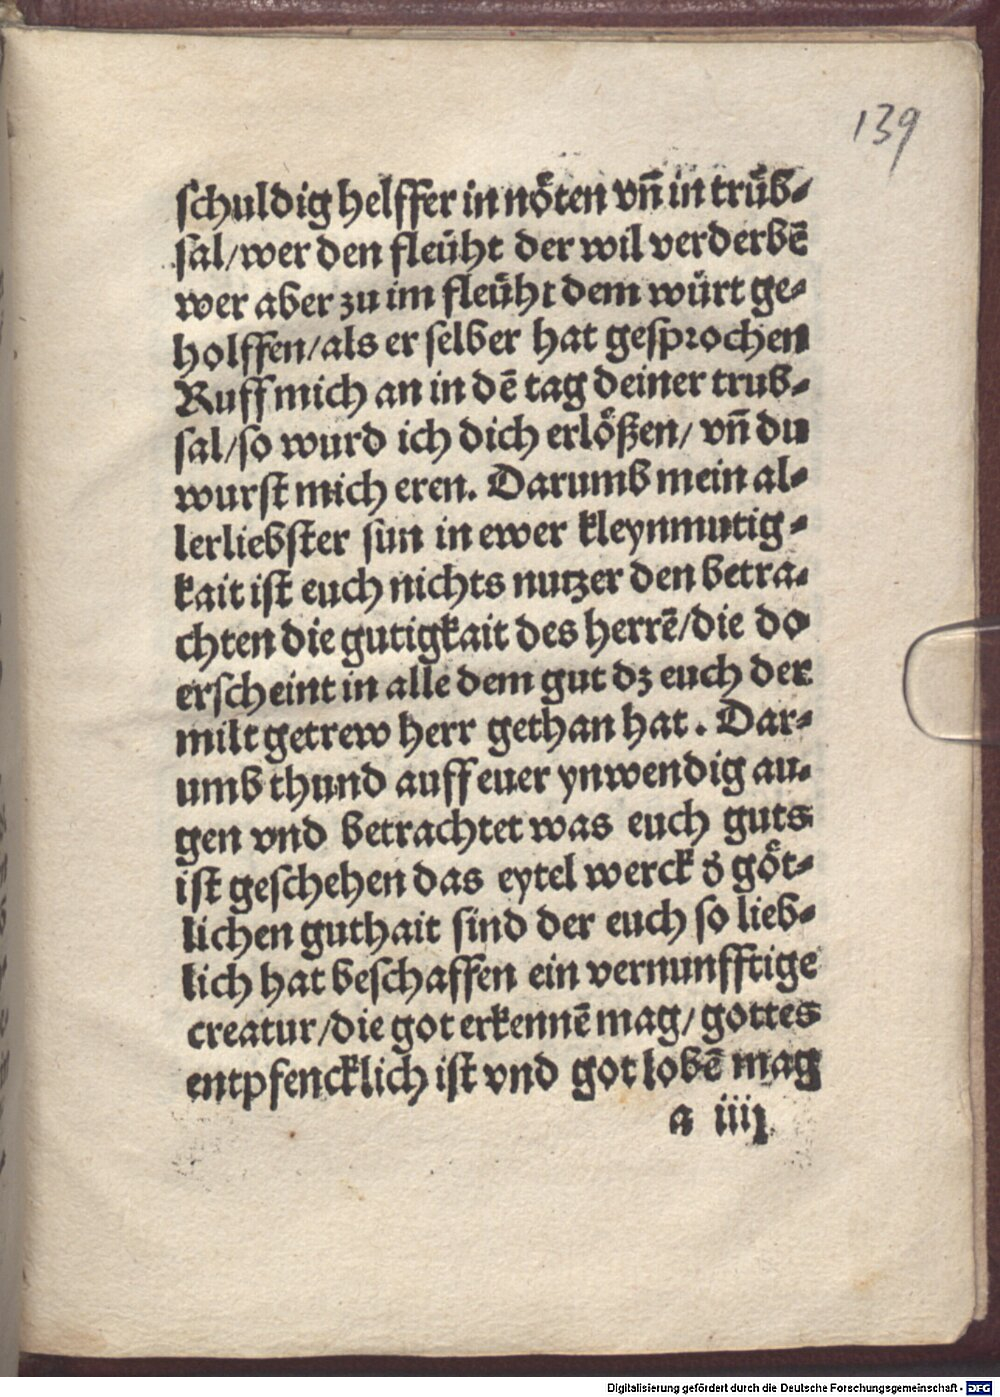 139
schuldig helffer in nöten vn̄ in trüb⸗
sal/wer den fleüht der wil verderbē
wer aber zu im fleüht dem würt ge⸗
holffen/als er selber hat gesprochen
Ruff mich an in dē tag deiner trub⸗
sal/so wurd ich dich erlößen/ vn̄ du
wurst mich eren. Darumb mein al⸗
lerliebster sun in ewer kleynmutig⸗
kait ist euch nichts nutzer den betra⸗
chten die gutigkait des herrē/die do
erscheint in alle dem gut dz euch der
milt getrew herr gethan hat. Dar⸗
umb thund auff euer ynwendig au⸗
gen vnd betrachtet was euch guts
ist geschehen das eytel werck d̕ göt⸗
lichen guthait sind der euch so lieb⸗
lich hat beschaffen ein vernunfftige
creatur/die got erkennē mag/ gottes
entpfencklich ist vnd got lobē mag
a iiij
Digitalisierung gefördert durch die Deutsche Forschungsgemeinschaft - DFG